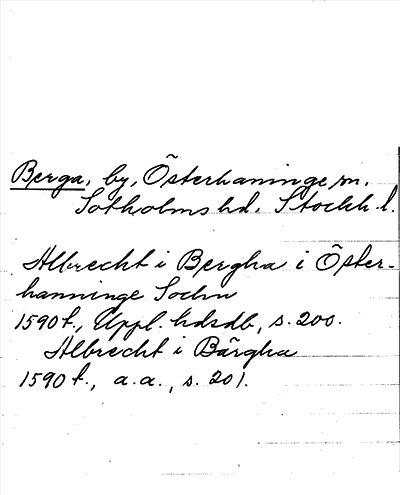 Berga, by, Österhaninge sn.
Sotholms hd. Stockh. l.
Albrecht i Bergha i Öster-
hanninge Sochn
1590 t., Uppl. hdsdb, s. 200.
Albrecht i Bärgha
1590 t., a. a., s. 201.